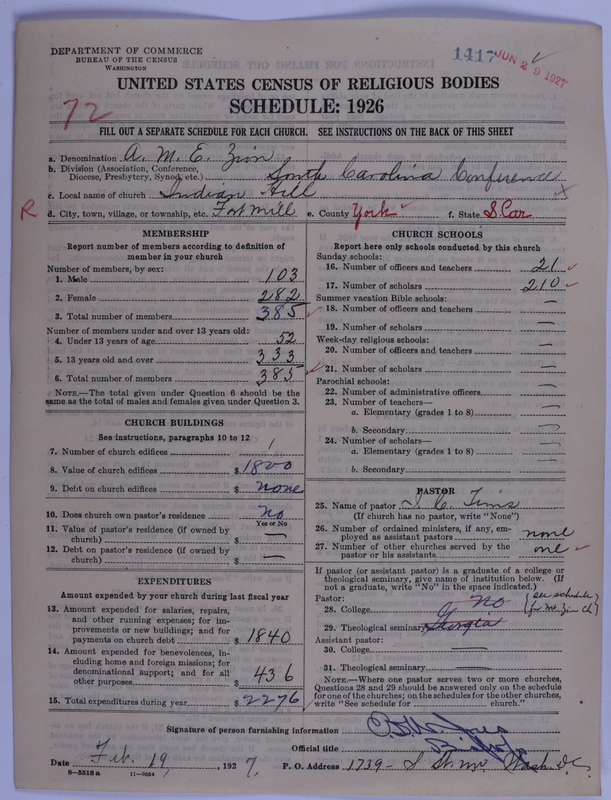 DEPARTMENT OF COMMERCE
BUREAU OF THE CENSUS
WASHINGTON
1417 JUN 29 1927
UNITED STATES CENSUS OF RELIGIOUS BODIES
SCHEDULE: 1926
72
FILL OUT A SEPARATE SCHEDULE FOR EACH CHURCH. SEE INSTRUCTIONS ON THE BACK OF THIS SHEET
a. Denomination A. M. E. Zion
b. Division (Association, Conference, Diocese, Presbytery, Synod, etc.) South Carolina Conference
c. Local name of church Indian Hill x
R d. City, town, village, or township, etc. Fort Mill e. County York f. State S. Car
MEMBERSHIP
Report number of members according to definition of
member in your church
Number of members, by sex:
1. Male 103
2. Female 282
3. Total number of members 385
Number of members under and over 13 years old:
4. Under 13 years of age 52
5. 13 years old and over 333
6. Total number of members 385
NOTE.—The total given under Question 6 should be the
same as the total of males and females given under Question 3.
CHURCH BUILDINGS
See instructions, paragraphs 10 to 12
7. Number of church edifices 1
8. Value of church edifices $ 1800
9. Debt on church edifices $ none
10. Does church own pastor's residence No
Yes or No
11. Value of pastor's residence (if owned by
church) $ —
12. Debt on pastor's residence (if owned by
church) $ —
EXPENDITURES
Amount expended by your church during last fiscal year
13. Amount expended for salaries, repairs,
and other running expenses; for im-
provements or new buildings; and for
payments on church debt $ 1840
14. Amount expended for benevolences, in-
cluding home and foreign missions; for
denominational support; and for all
other purposes $ 436
15. Total expenditures during year $ 2276
CHURCH SCHOOLS
Report here only schools conducted by this church
Sunday schools:
16. Number of officers and teachers 21
17. Number of scholars 210
Summer vacation Bible schools:
18. Number of officers and teachers —
19. Number of scholars —
Week-day religious schools:
20. Number of officers and teachers —
21. Number of scholars —
Parochial schools:
22. Number of administrative officers —
23. Number of teachers—
a. Elementary (grades 1 to 8) —
b. Secondary —
24. Number of scholars—
a. Elementary (grades 1 to 8) —
b. Secondary —
PASTOR
25. Name of pastor
(If church has no pastor, write "None")
26. Number of ordained ministers, if any, em-
ployed as assistant pastors none
27. Number of other churches served by the
pastor or his assistants one
If pastor (or assistant pastor) is a graduate of a college or
theological seminary, give name of institution below. (If
not a graduate, write "No" in the space indicated.)
Pastor:
28. College No (see schedule
29. Theological seminary Georgia for Mt. Zion Ch)
Assistant pastor:
30. College —
31. Theological seminary —
NOTE.—Where one pastor serves two or more churches,
Questions 28 and 29 should be answered only on the schedule
for one of the churches; on the schedules for the other churches,
write "See schedule for church."
Signature of person furnishing information
Official title Bishop
Date Feb. 19, 1927, P. O. Address 1739- St. NW Wash. DC
8—5318a 11—9054